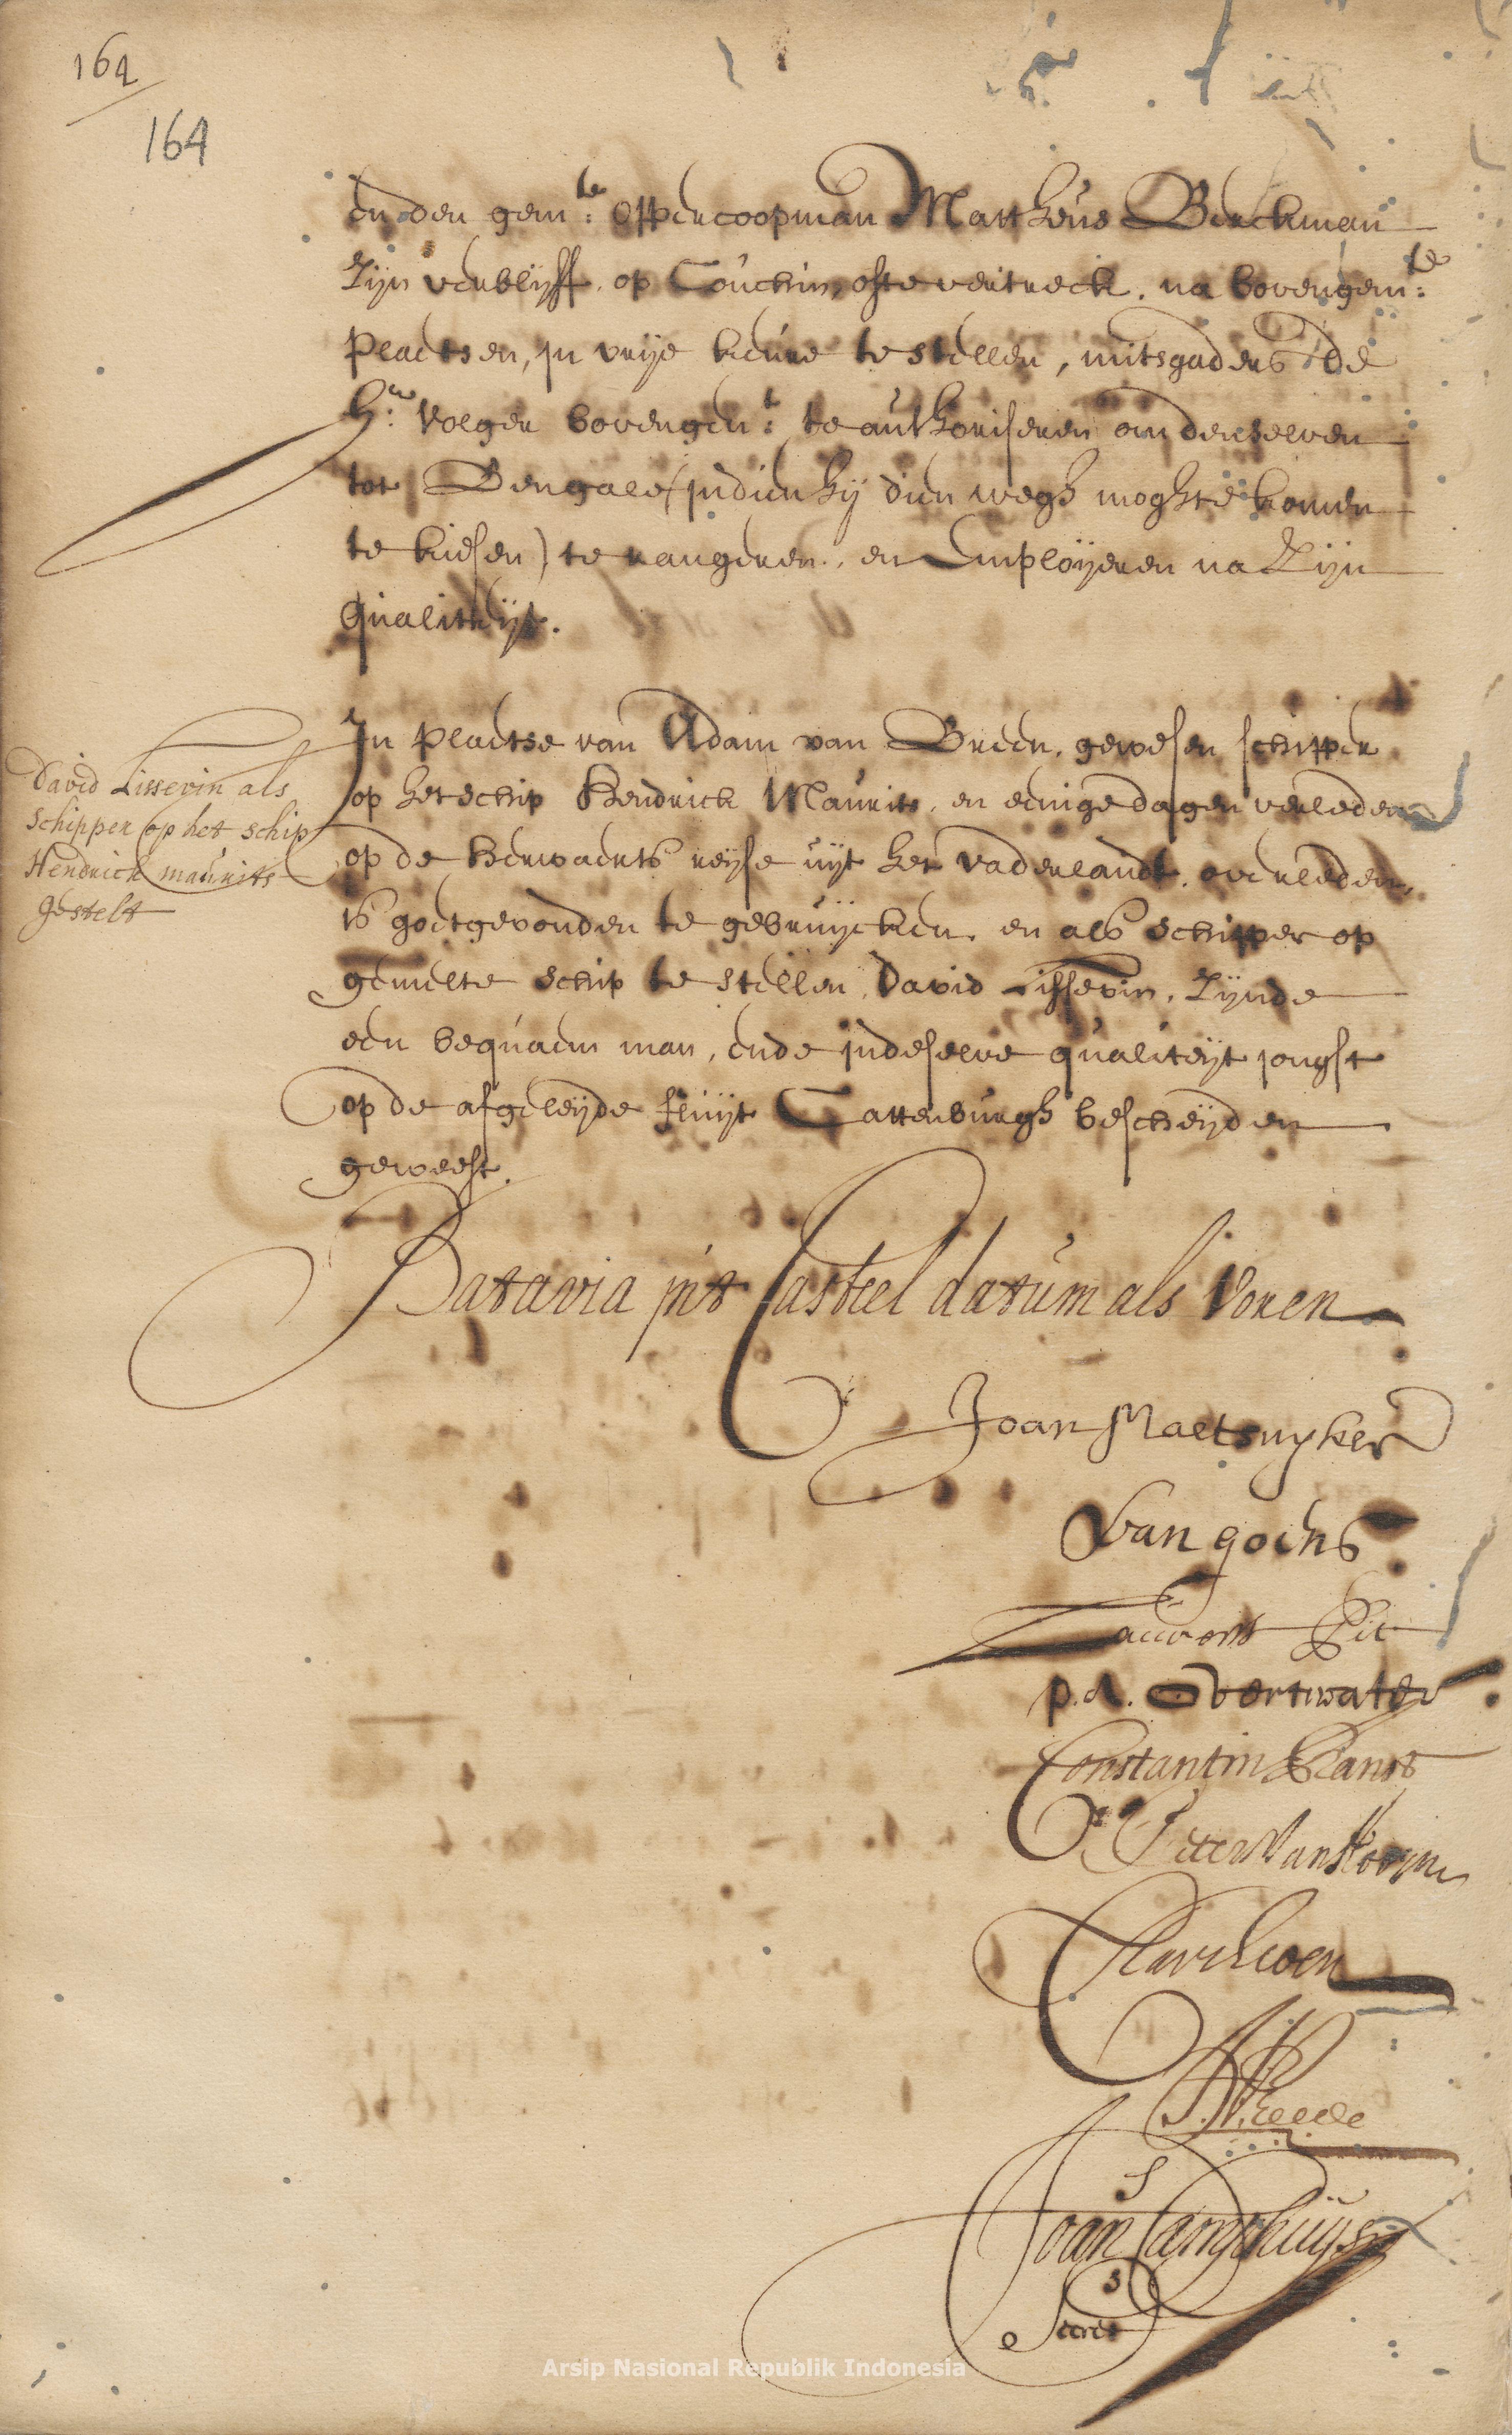 164
164
en den gem:te oppercoopman Mattheus Berckman
zijn verblijff op Couchin, ofte vertreck, na bovengem:te
plaetsen, in vrije keure te stellen, mitsgaders de
Hr: Volger bovengen:t te authoriseren om denselven
tot Bengale (indien hij dien wegh moghte komen
te kiesen) te rangeren, en Employeren na zijn
qualiteijt.
David Lissevin als
schipper op het schip
Hendrick maurits
gestelt
In plaetse van Adam van Breen, gewesen schipper
op het schip Hendrick Maurits, en eenige dagen verleden
op de herwaerts reijse uijt het vaderlandt overleden,
is goetgevonden te gebruijcken en als schipper op
gemelte schip te stellen, David Lissevin, zijnde
een bequaem man, ende in deselve qualiteijt jongst
op de afgeleijde fluijt Cattenburgh bescheijden
geweest.
Batavia in't Casteel datum als voren
Joan Maetsuyker
Van goens
Laurens Pit
p. A. Overtwater
Constantin Ranst
Pieter Van Hoorn
Joan Camphuys
Secrets
Arsip Nasional Republik Indonesia